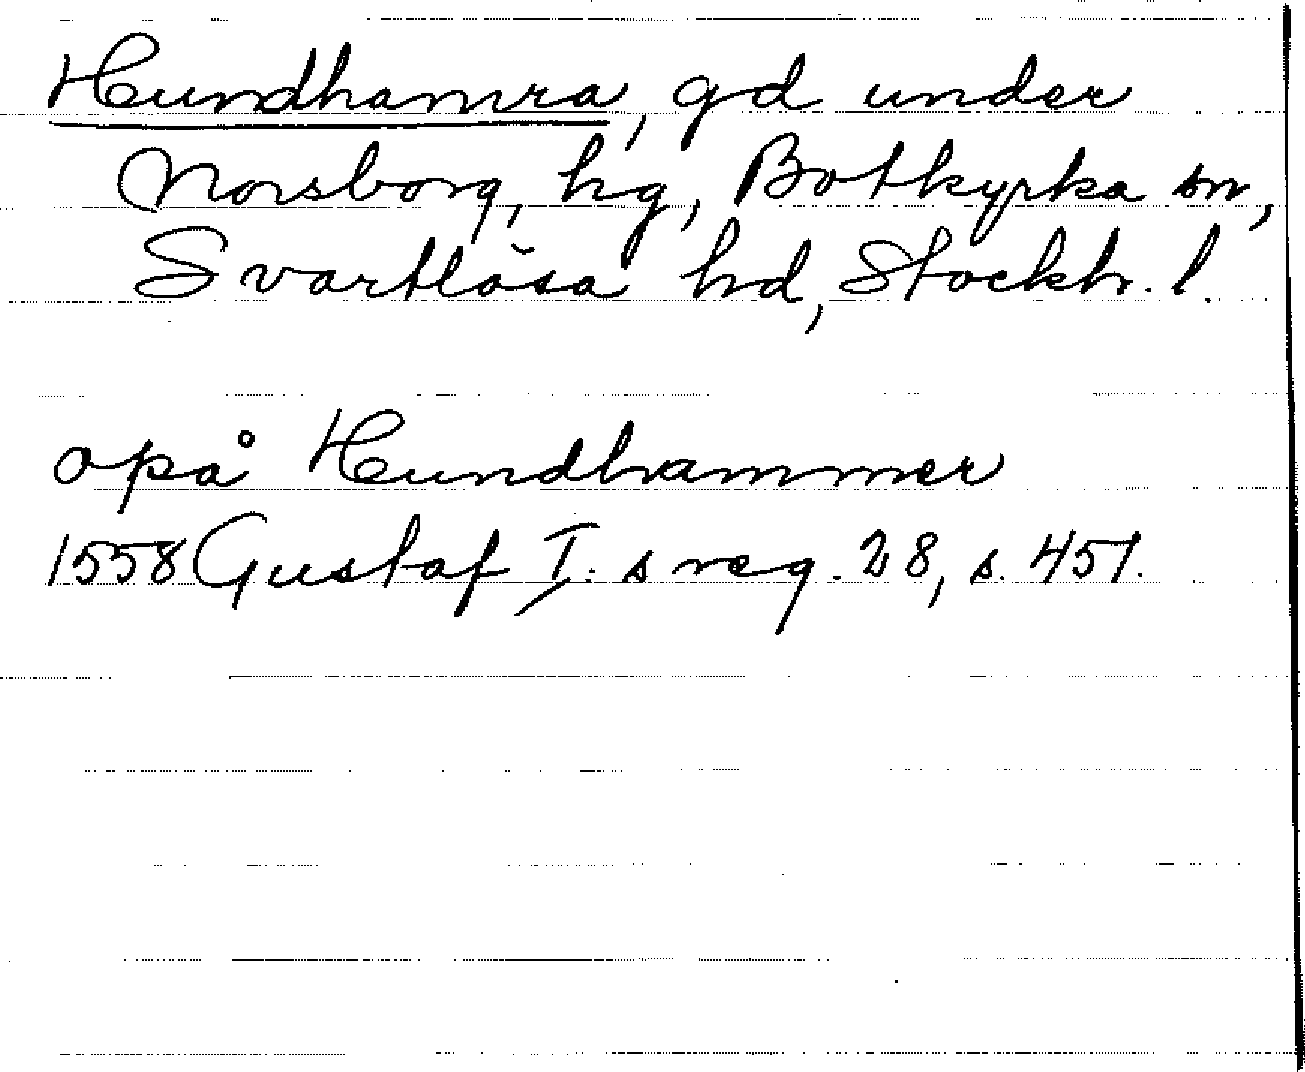 Hundhamra, gd under
Norsborg, hg, Botkyrka sn,
Svartlösa hd, Stockh. l.
opå Hundhammer
1558 Gustaf I:s reg. 28, s. 451.